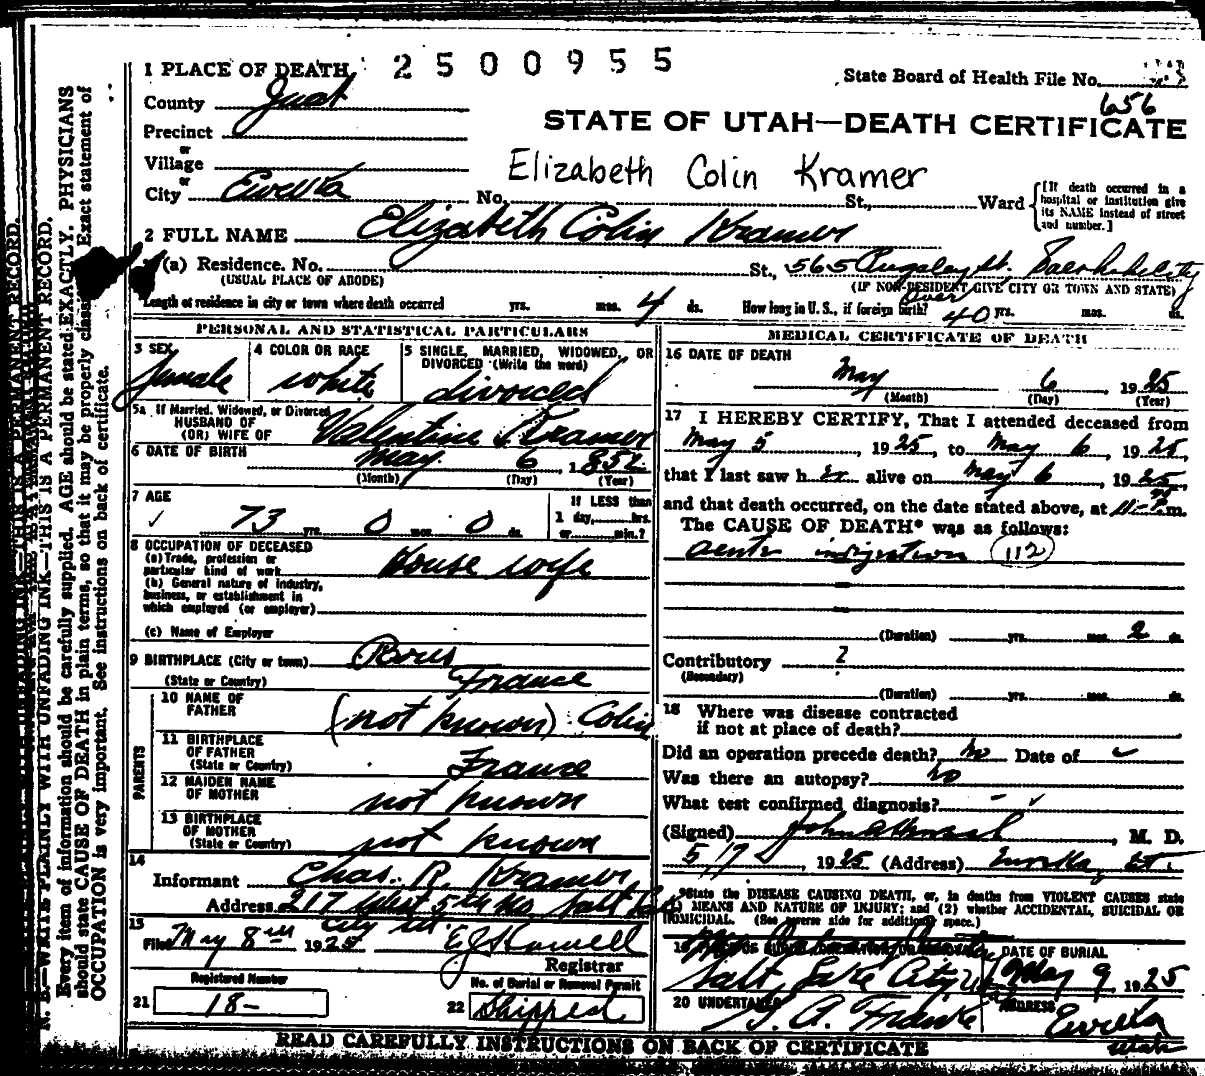 1 PLACE OF DEATH 2500955
State Board of Health File No.
656
County Juab
STATE OF UTAH—DEATH CERTIFICATE
Precinct
or
Village
Elizabeth Colin Kramer
or
City Eureka No. St., Ward
[If death occurred in a hospital or institution give its NAME instead of street and number.]
2 FULL NAME Elizabeth Colin Kramer
(a) Residence. No. St., 565 Pugsley St. Salt Lake City
(USUAL PLACE OF ABODE) (IF NON-RESIDENT GIVE CITY OR TOWN AND STATE)
Length of residence in city or town where death occurred yrs. mos. 4 ds. How long in U. S., if foreign birth? Over 40 yrs. mos. ds.
PERSONAL AND STATISTICAL PARTICULARS
3 SEX 4 COLOR OR RACE 5 SINGLE, MARRIED, WIDOWED, OR
DIVORCED (Write the word)
female white divorced
5a If Married, Widowed, or Divorced
HUSBAND OF
(OR) WIFE OF Valentine Kramer
6 DATE OF BIRTH May 6, 1852
(Month) (Day) (Year)
7 AGE If LESS than
73 yrs. 0 mos. 0 ds. 1 day, hrs.
or min.?
8 OCCUPATION OF DECEASED
(a) Trade, profession or
particular kind of work House wife
(b) General nature of industry,
business, or establishment in
which employed (or employer)
(c) Name of Employer
9 BIRTHPLACE (City or town)
(State or Country) France
PARENTS
10 NAME OF
FATHER (not known) Colin
11 BIRTHPLACE
OF FATHER
(State or Country) France
12 MAIDEN NAME
OF MOTHER not known
13 BIRTHPLACE
OF MOTHER
(State or Country) not known
14
Informant Chas. R. Kramer
Address 217 West 5th No. Salt Lake
City Ut.
15
Filed May 8th 1925 E J Howell
Registrar
Registered Number No. of Burial or Removal Permit
21 18- 22 Shipped
MEDICAL CERTIFICATE OF DEATH
16 DATE OF DEATH
May 6, 1925
(Month) (Day) (Year)
17 I HEREBY CERTIFY, That I attended deceased from
May 5, 1925, to May 6, 1925,
that I last saw her alive on May 6, 1925,
and that death occurred, on the date stated above, at m.
The CAUSE OF DEATH* was as follows:
acute indigestion (112)
(Duration) yrs. mos. 2 ds.
Contributory ?
(Secondary)
(Duration) yrs. mos. ds.
18 Where was disease contracted
if not at place of death?
Did an operation precede death? no Date of
Was there an autopsy? no
What test confirmed diagnosis? -
(Signed) M. D.
5/7, 1925 (Address) Eureka, Ut.
*State the DISEASE CAUSING DEATH, or, in deaths from VIOLENT CAUSES state
(1) MEANS AND NATURE OF INJURY; and (2) whether ACCIDENTAL, SUICIDAL OR
HOMICIDAL. (See reverse side for additional space.)
19 DATE OF BURIAL
Salt Lake City May 9 1925
20 UNDERTAKER ADDRESS
Eureka
Utah
READ CAREFULLY INSTRUCTIONS ON BACK OF CERTIFICATE
N. B.—WRITE PLAINLY WITH UNFADING INK—THIS IS A PERMANENT RECORD.
Every item of information should be carefully supplied. AGE should be stated EXACTLY. PHYSICIANS
should state CAUSE OF DEATH in plain terms, so that it may be properly Exact statement of
OCCUPATION is very important. See instructions on back of certificate.